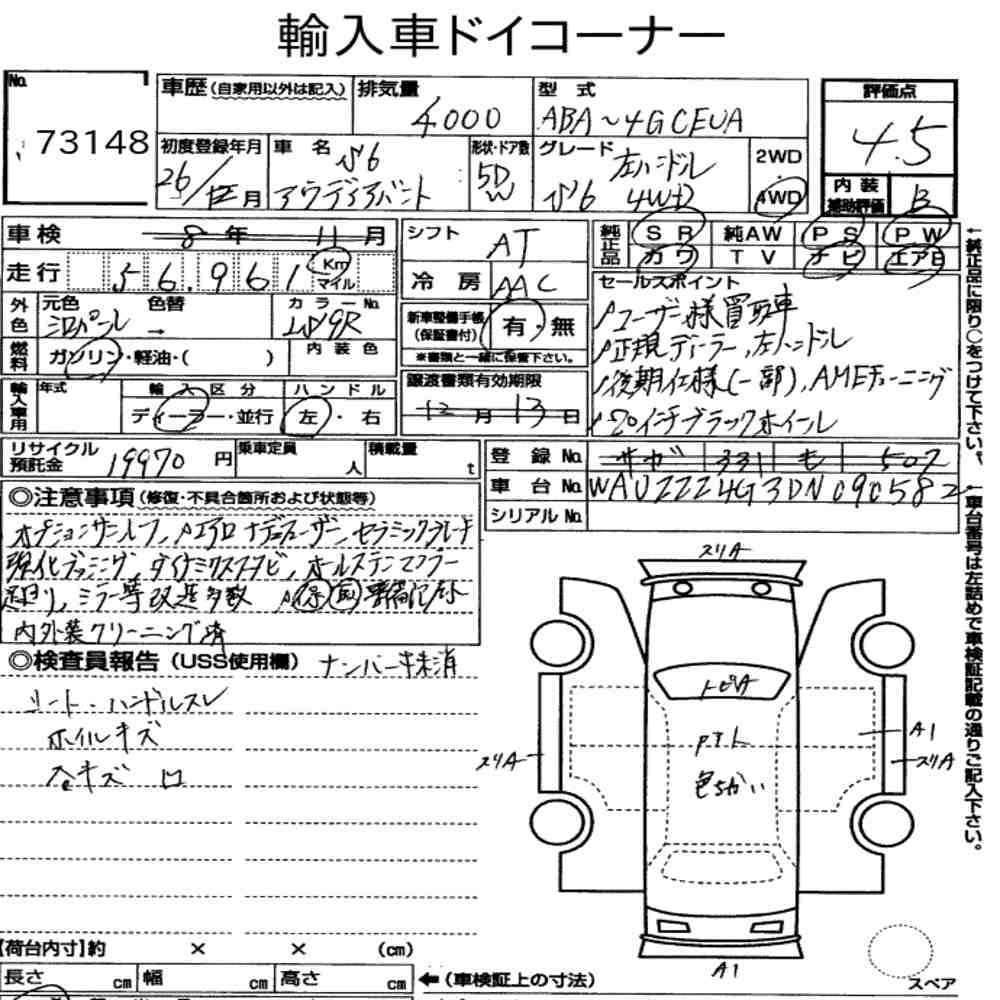 輸入車ドイコーナー
No.
73148
車歴 (自家用以外は記入)
排気量
4000
型式
ABA~4GCEUA
評価点
4.5
内装
補助評価
B
初度登録年月
26/
月
車名
S6
アウディアバント
形状・ドア数
5D
W
グレード
左ハンドル
S6 4WD
2WD
4WD
車検
8年 11月
走行
56.961
Km
マイル
シフト
AT
冷房
AAC
純正品
SR
純AW
PS
PW
カワ
TV
ナビ
エアB
外色
元色
シロパール
色替
→
カラーNo.
LS9R
燃料
ガソリン・軽油・( )
内装色
新車整備手帳
(保証書付)
有・無
※書類と一緒に保管下さい。
セールスポイント
ユーザー様買取車
正規ディーラー、左ハンドル
後期仕様(一部)、AMEチューニング
20インチブラックホイール
輸入車用
年式
輸入区分
ディーラー・並行
ハンドル
左・右
譲渡書類有効期限
12月13日
リサイクル
預託金
19970円
乗車定員
人
積載量
t
登録No.
サガ 331 も 507
車台No.
WAUZZZ4G3DN090582
シリアルNo.
◎注意事項 (修復・不具合箇所および状態等)
オプションサンルーフ、エアロ ナデューザー、セラミックブレーキ
強化ブッシング、ダイナミックスタビ、オールステンマフラー
足回り、ミラー等改造多数 保 取 整備記録
内外装クリーニング済
◎検査員報告 (USS使用欄)
ナンバー 未消
シート・ハンドルスレ
ホイルキズ
キズ
スリA
トビA
色ちがい
A1
スリA
スリA
A1
スペア
【荷台内寸】約 × × (cm)
長さ cm 幅 cm 高さ cm
←(車検証上の寸法)
←純正品に限り○をつけて下さい。
←車台番号は左詰めで車検証記載の通りご記入下さい。